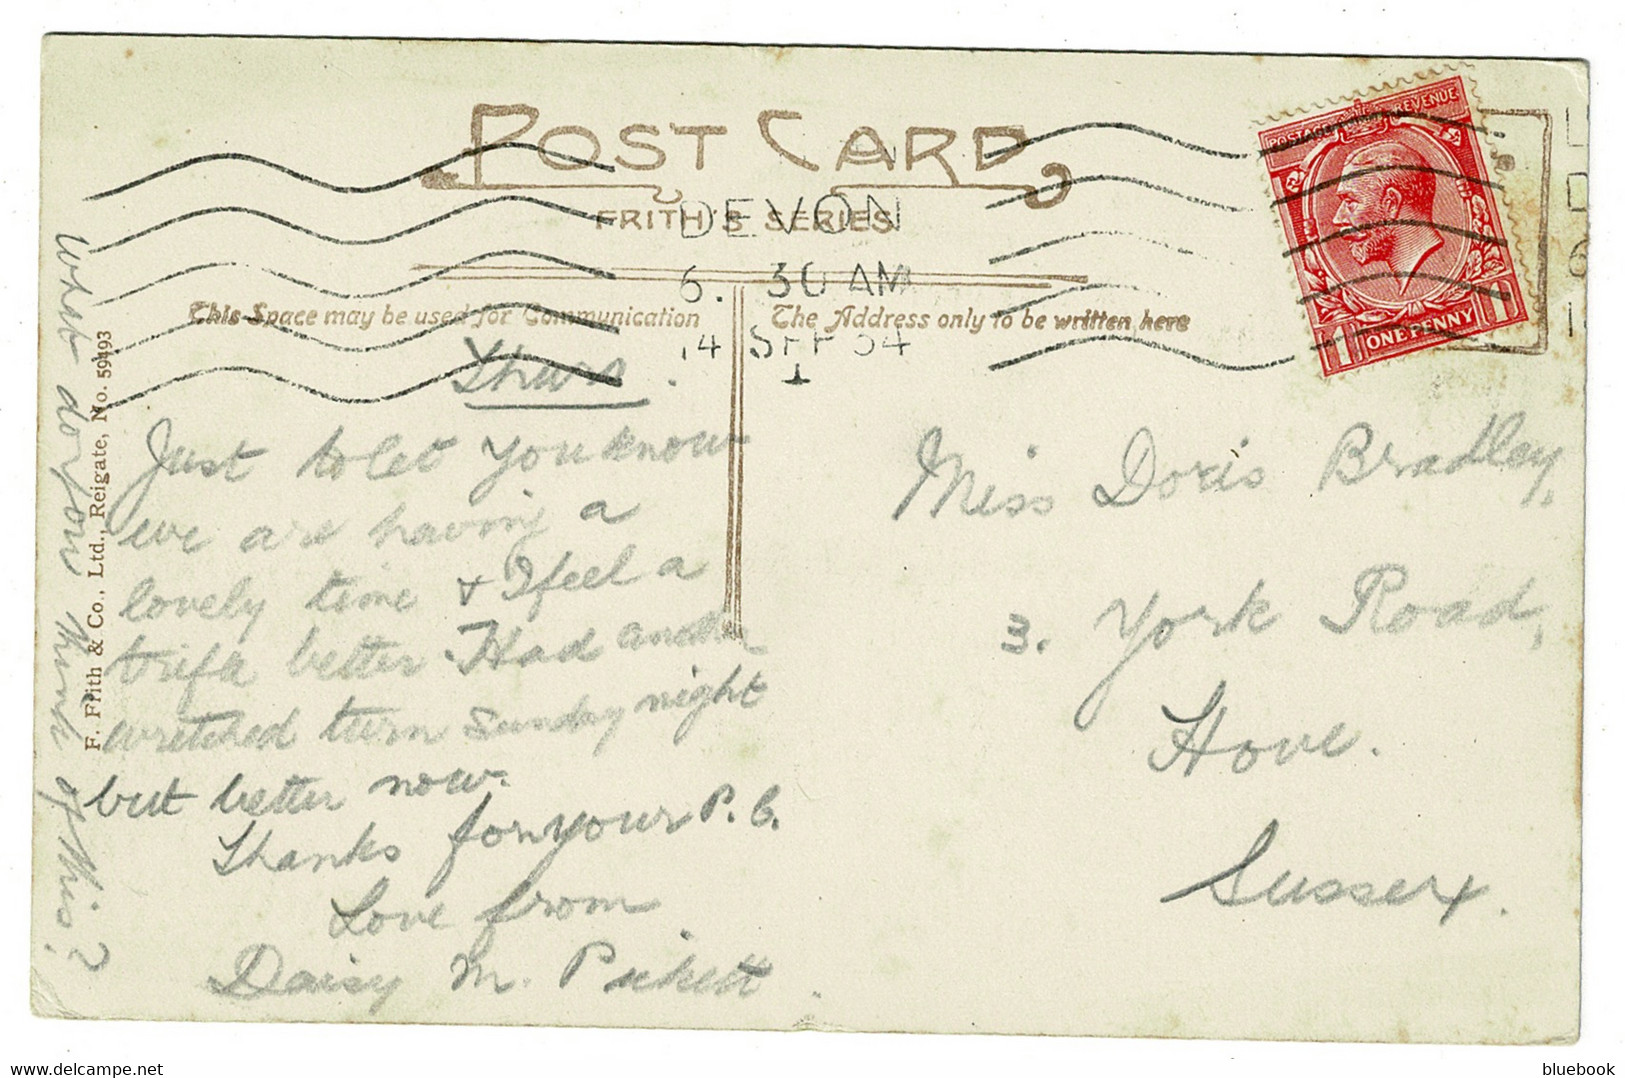 POST CARD
FRITH'S SERIES
DEVON
6. 30 AM
14 SEP 34
1
POSTAGE REVENUE
1 ONE PENNY 1
This Space may be used for Communication
The Address only to be written here
Thurs.
Just to let you know
we are having a
lovely time + I feel a
trifle better. Had another
wretched turn Sunday night
but better now.
Thanks for your P.C.
Love from
Daisy M. Pickett.
Miss Doris Bradley,
3. York Road,
Hove.
Sussex.
What do you think of this?
F. Frith & Co., Ltd., Reigate, No. 59493
bluebook